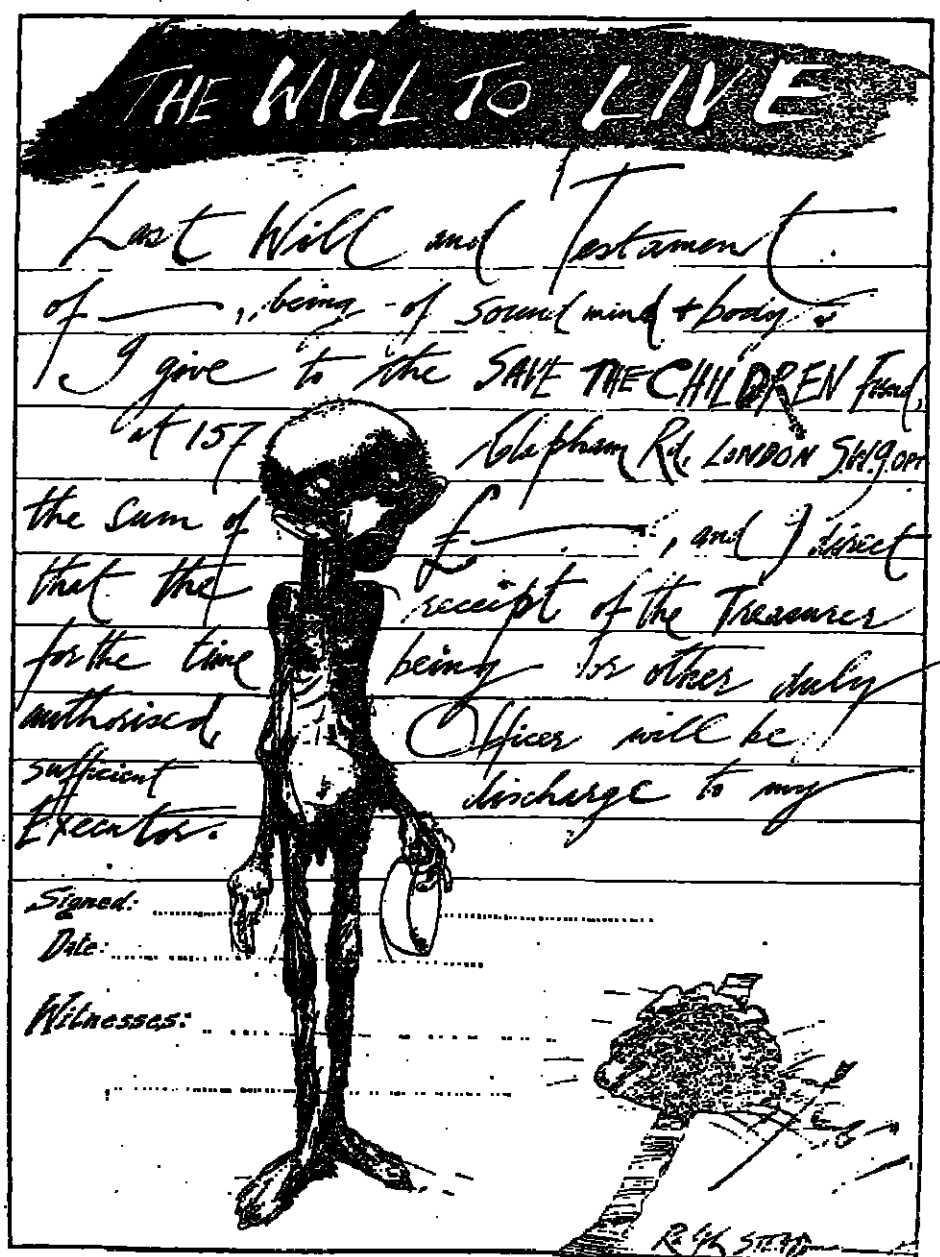 THE WILL TO LIVE
Last Will and Testament.
of ———, being of sound mind + body
I give to the SAVE THE CHILDREN Fund,
at 157 Clapham Rd, LONDON S.W.9.OPT
the sum of £———, and I direct
that the receipt of the Treasurer
for the time being or other duly
authorised, Officer will be
sufficient discharge to my
Executor.
Signed:
Date:
Witnesses:
Ralph